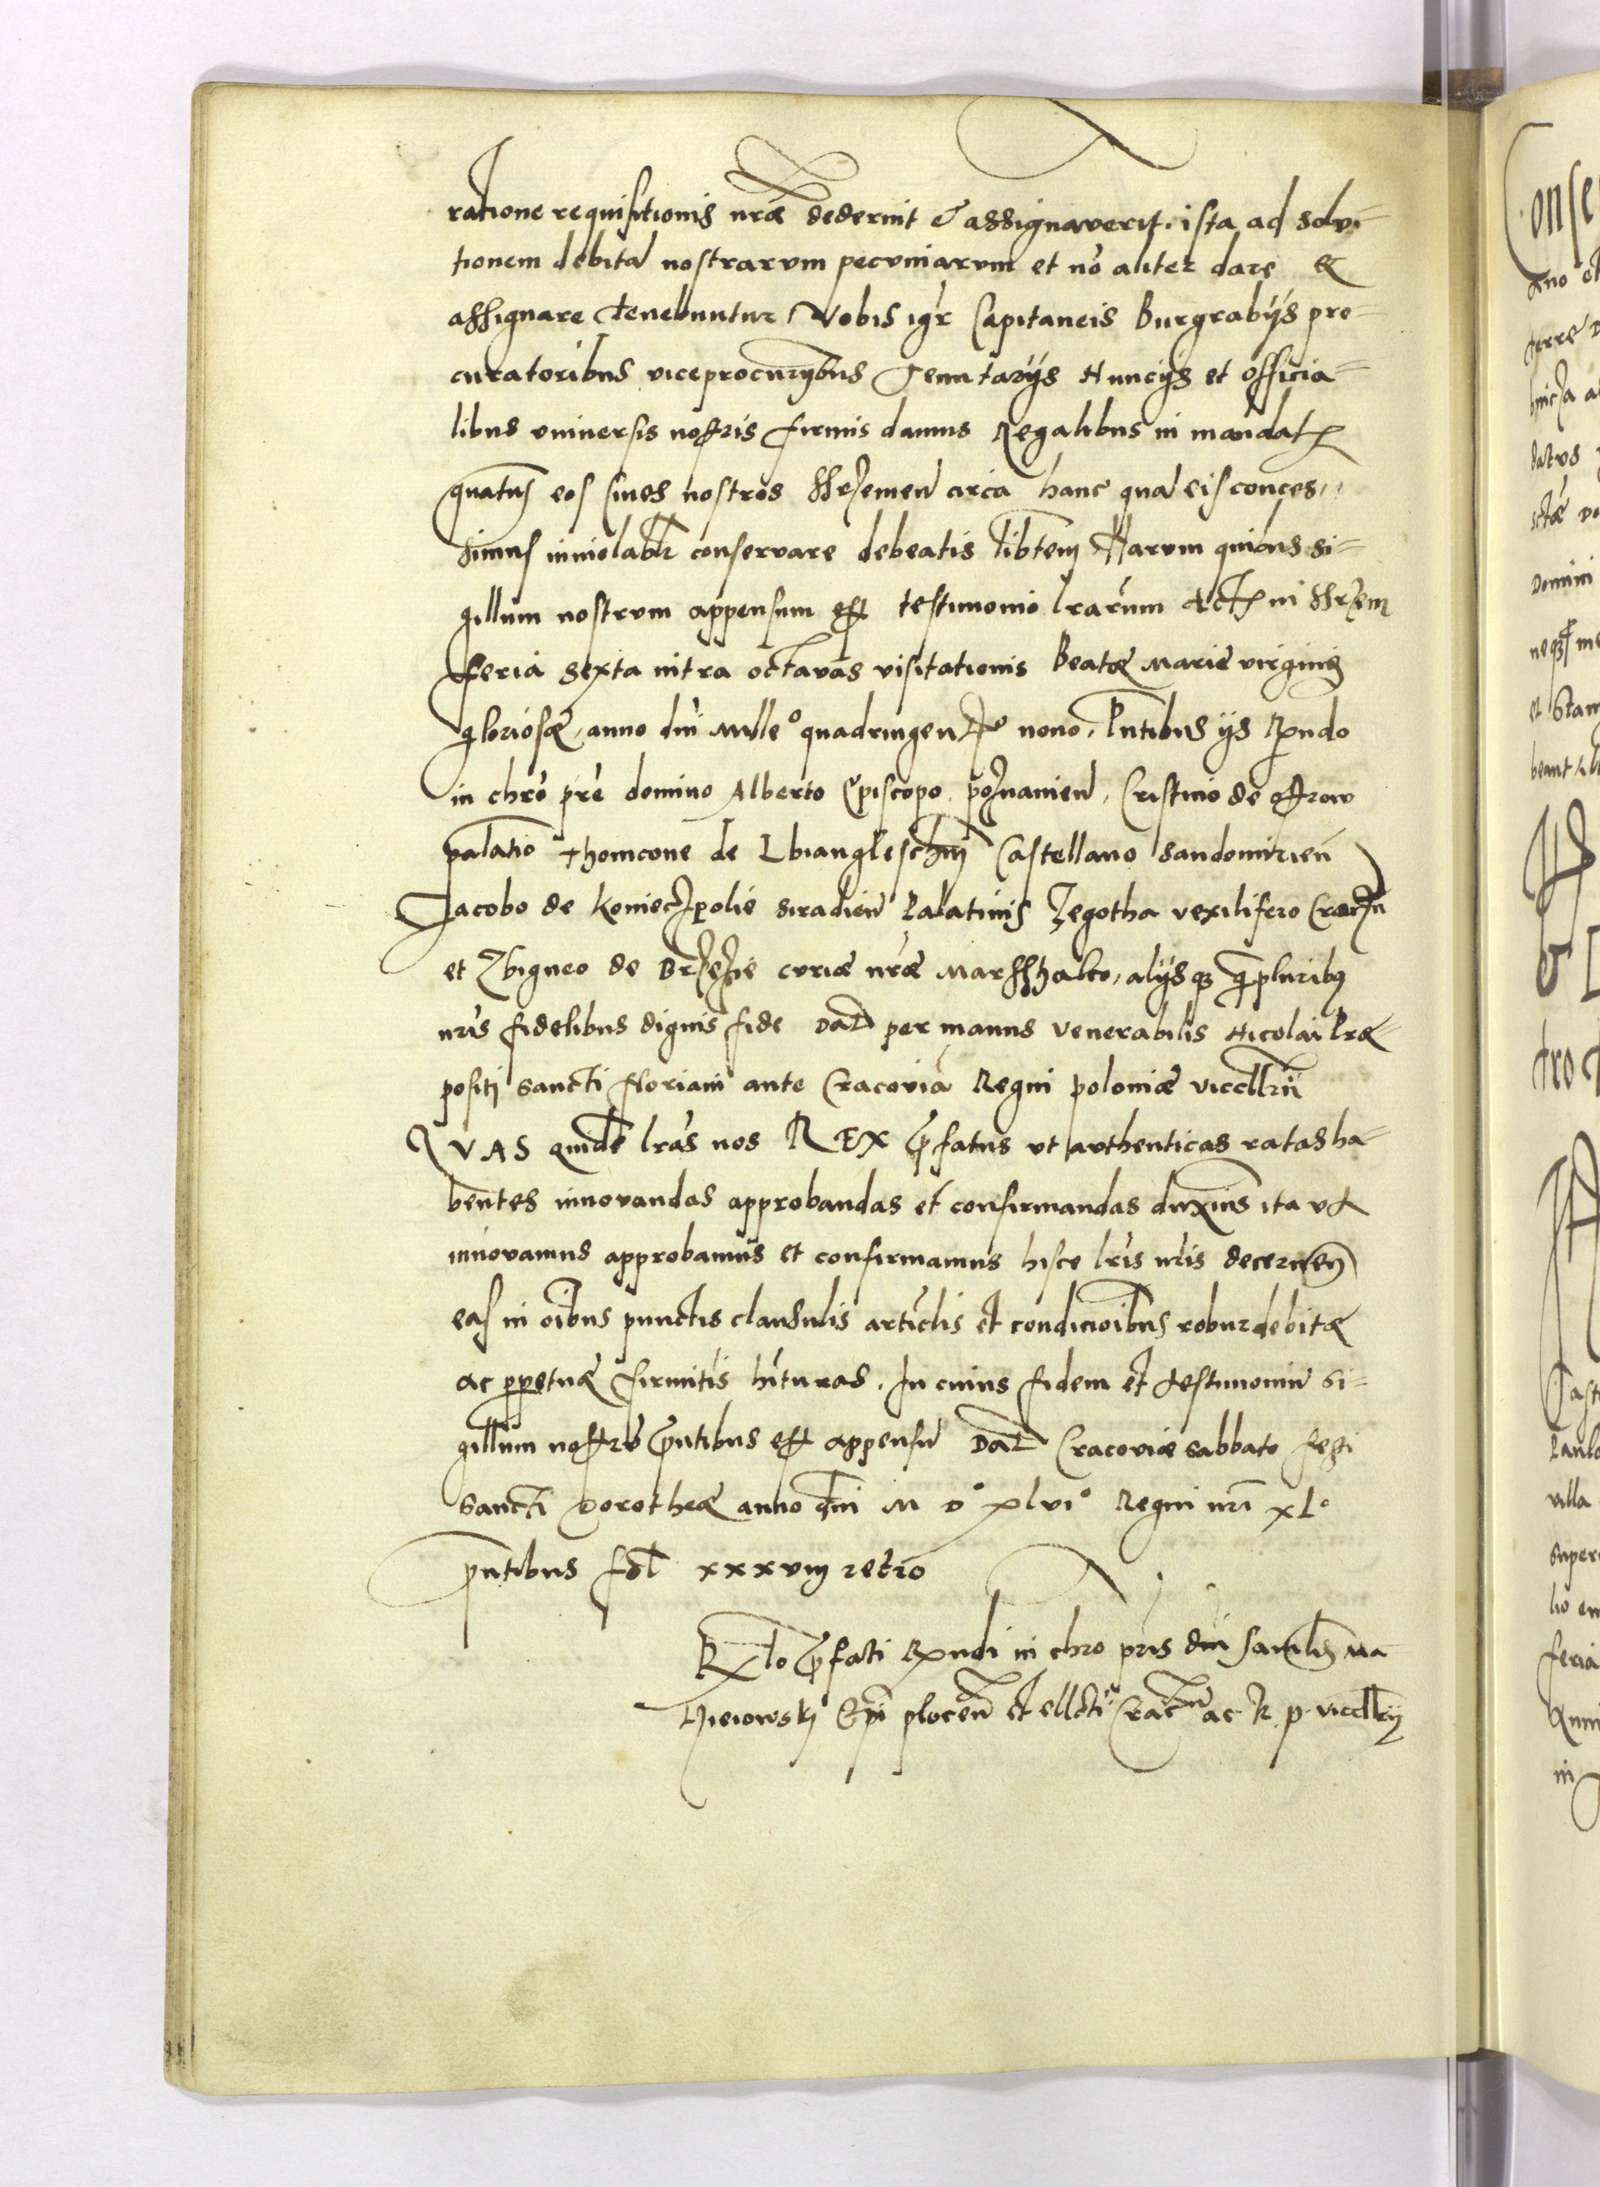 ratione requisitionis nrae dederint & assignaverit. ista ad solui-
tionem debita nostrarum pecuniarum et nō aliter dare &
assignare tenebuntur Vobis igr Capitaneis Burgrabijs pro-
curatoribus viceprocur̄ibus Tenutarijs Nuncijs et officia-
libus vniuersis nostris firmis damus Regalibus in mandat
quatus eos Ciues nostros Shrzemen circa hanc qua eis conces-
simus inuiolablr conservare debeatis libtem Harum quibus si-
gillum nostrum appensum est testimonio lrarum Act in Shrzem
Feria sexta intra octavas visitationis Beatae Mariae virginis
gloriosae, anno dni Mille° quadringen° nono. Pntibus ijs Rndo
in chro pre domino Alberto Episcopo poznanien, Cristino de ostrow
palatio Thomcone de Castellano Sandomirien
Jacobo de Konieczpolie Siradien Palatinis Zegotha vexilifero Cracn
et Zbigneo de Brzezie curiae nrae Marsshalco, alijsq qpluribq
nris fidelibus dignis fide Dat per manus venerabilis Nicolai Prae-
positi sancti Floriani ante Cracovia Regni poloniae vicecllrii
QVAS quide lras nos REX pfatus vt avthenticas ratas ha-
bentes innovandas approbandas et confirmandas duximus ita vt
innovamus approbamus et confirmamus hisce lris nris decernen
eas in oibus punctis clausulis articlis et condicioibus robur debitae
ac ppetuae firmitis hituras. In cuius fidem et testimoniu si-
gillum nostru pntibus est appensu Dat Cracoviae sabbato festi
Sancti Dorotheae anno dni M D° xlvi° Regni nri xl°
pntibus fol xxxviij retro
Rlo pfati Rndi in chro pris dni Samlis Ma
cieiowskj Epi plocen et ellcti Cracn ac R. p. vicecllrij